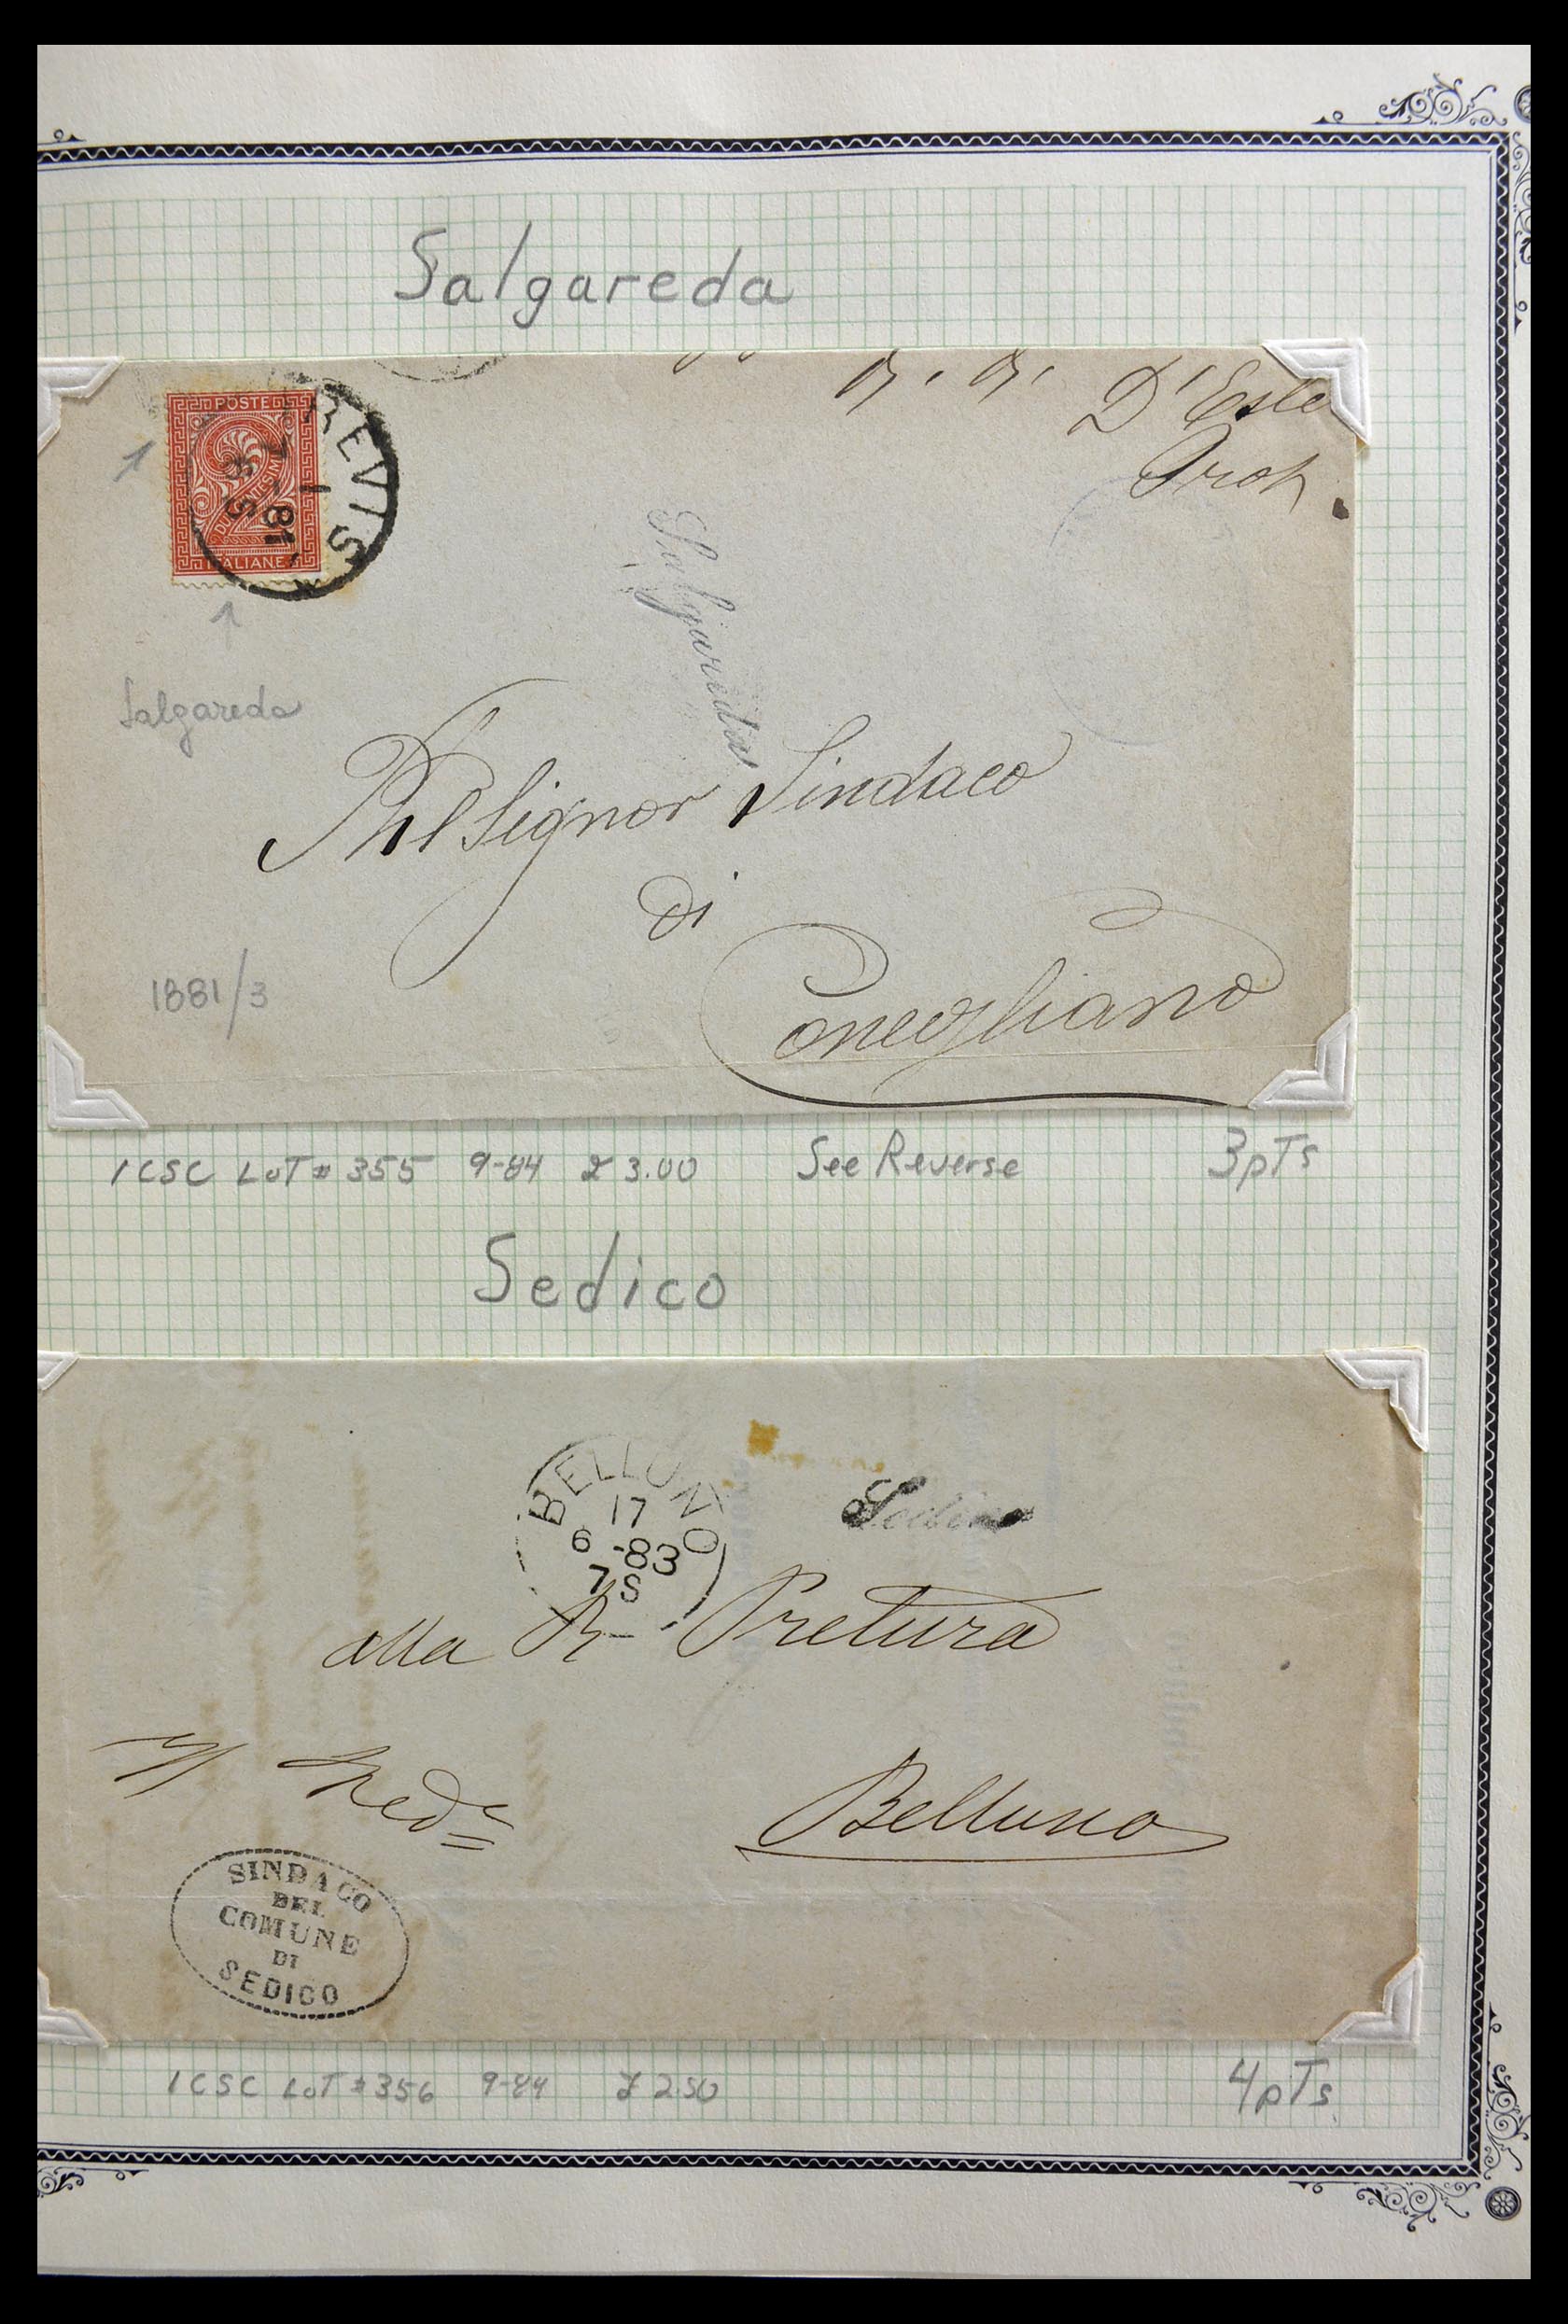 Salgareda
D'Este
Prot.
POSTE
DUE CENTESIMI
ITALIANE
REVIS
7 - 1
81
8 S
Salgareda
Salgareda
Al Signor Sindaco
di
Conegliano
1881/3
ICSC LOT # 355 9-84 £3.00 See Reverse 3pTs
Sedico
BELLUNO
17
6 -83
7 S
Sedico
alla R. Pretura
Belluno
SINDACO
DEL
COMUNE
DI
SEDICO
ICSC LOT # 356 9-84 £2.50 4pTs